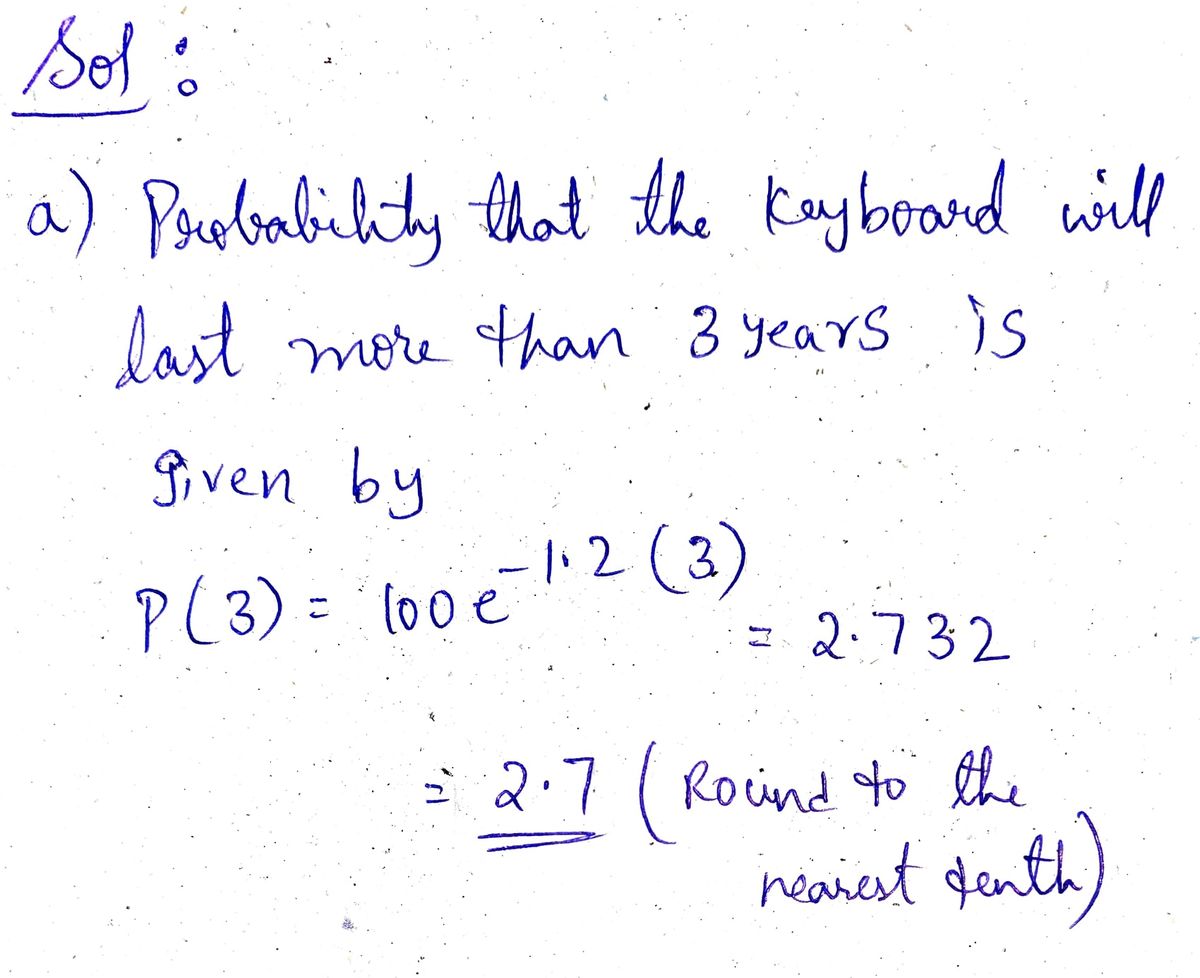 Sol :
a) Probability that the Keyboard will
last more than 3 years is
given by
P(3) = 100e^{-1.2(3)} = 2.732
= 2.7 (Round to the
nearest tenth)